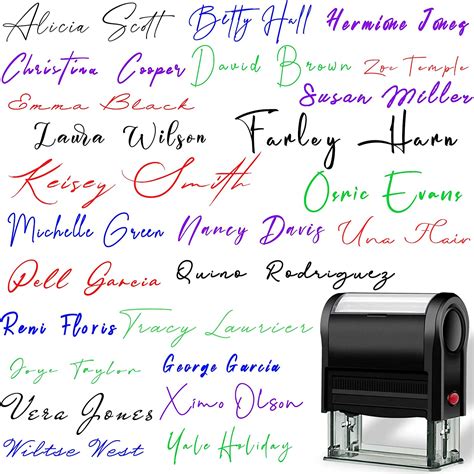 Alicia Scott Betty Hall Hermione Jones
Christina Cooper David Brown Zoe Temple
Emma Black Susan Miller
Laura Wilson Farley Harn
Keisey Smith Osric Evans
Michelle Green Nancy Davis Una Flair
Pell Garcia Quino Rodriguez
Remi Floris Tracy Laurier
Joye Taylor George Garcia
Vera Jones Ximo Olson
Wiltse West Yale Holiday